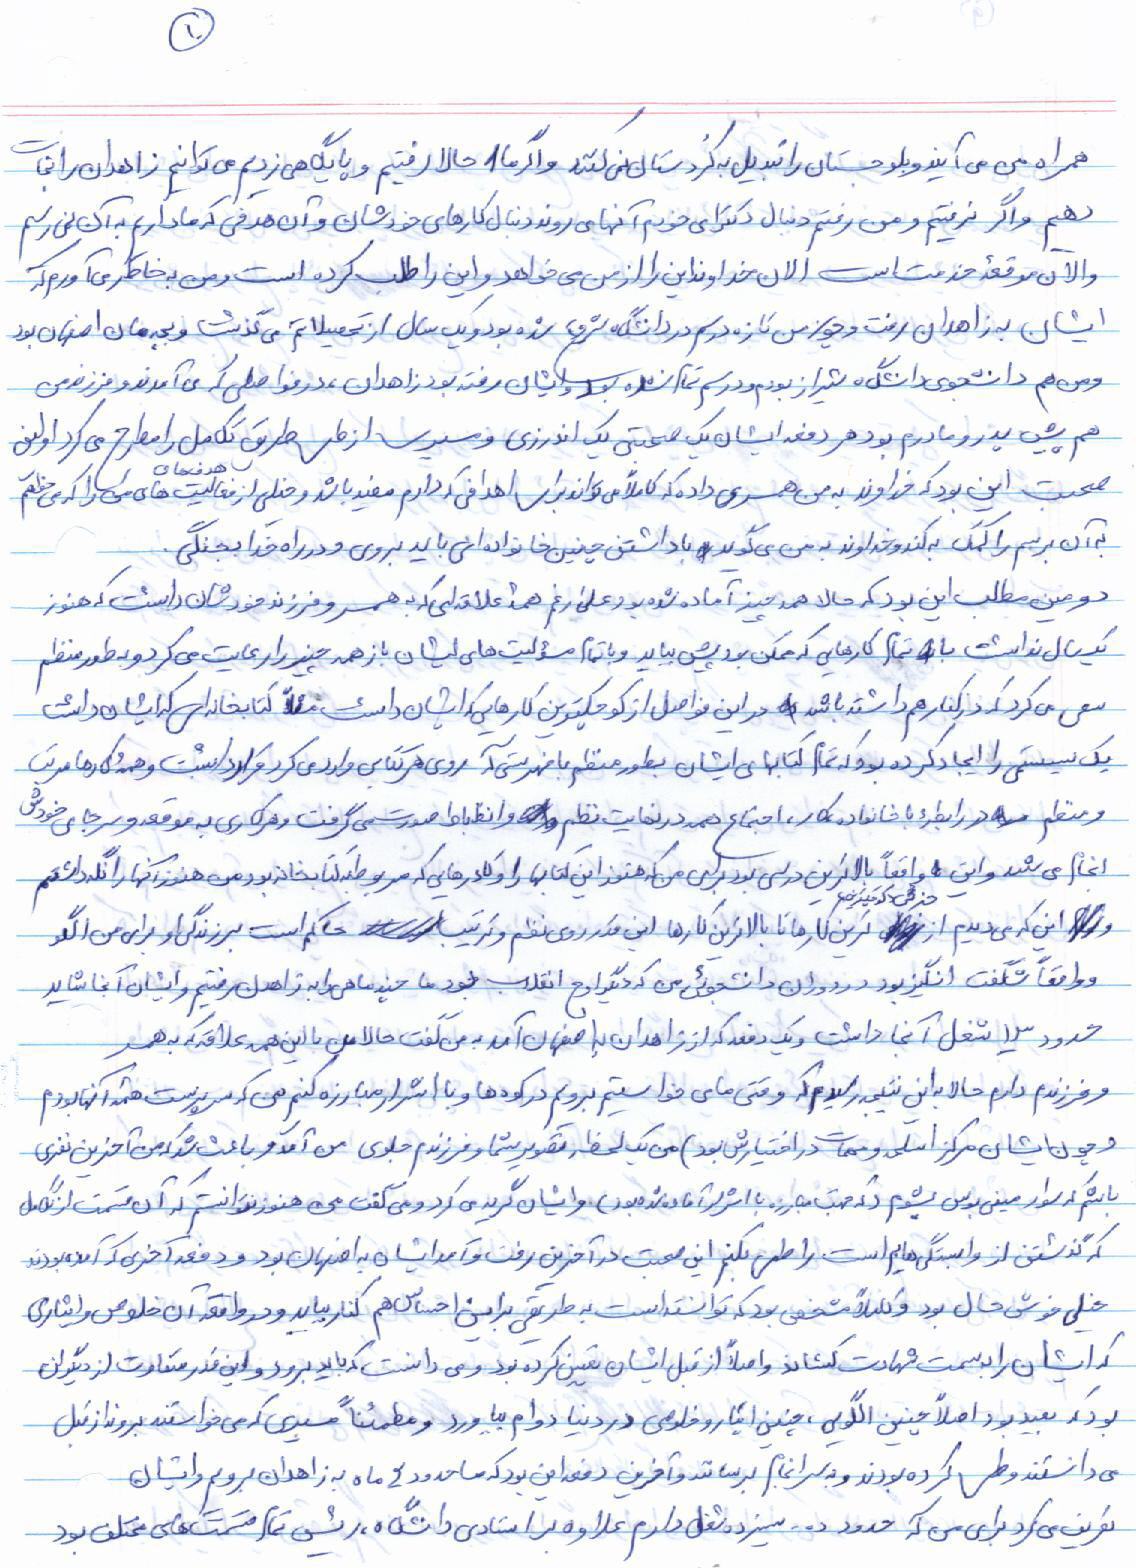 همراه من می آیند و بلوچستان را تبدیل به کردستان نمی کنند و اگر ما حالا رفتیم و پایگاهی زدیم می توانیم زاهدان را نجات
دهیم و اگر نرفتیم و من رفتم دنبال دکترای خودم آنها می روند دنبال کارهای خودشان و آن هدفی که ما داریم به آن نمی رسیم
و الآن موقعۀ خدمت است الان خداوند این را از من می خواهد و این را طلب کرده است و من به خاطر می آورم که
ایشان به زاهدان رفت و چون من تازه درسم در دانشگاه شروع شده بود و یک سال از تحصیلاتم می گذشت و بچه مان اصفهان بود
و من هم دانشجوی دانشگاه شیراز بودم و درسم تمام نشده بود و ایشان رفته بود زاهدان، در فواصلی که می آمدند و فرزند من
هم پیش پدر و مادرم بود هر دفعه ایشان یک صحبتی یک اندرزی و مسیری از طی طریق تکامل را مطرح می کرد اولین
صحبت این بود که خداوند به من همسری داده که کاملاً می تواند برای اهدافی که دارم مفید باشد و خیلی از فعالیت های من را که می خواهم
به آن برسم را کمک بکند و خداوند به من می گوید با داشتن چنین خانواده ای باید بروی و در راه خدا بجنگی.
دومین مطلب این بود که حالا همه چیز آماده شده بود علی رغم همۀ علاقه ای که به همسر و فرزند خودشان داشت که هنوز
یکسال نداشت با تمام کارهایی که ممکن بود پیش بیاید و با تمام مسؤلیت های ایشان باز همه چیز را رعایت می کرد و به طور منظم
سعی می کرد که در کنار هم داشته باشد در این فواصل از کوچکترین کارهایی که ایشان داشت مثلاً کتابخانه ای که ایشان داشت
یک سیستمی را ایجاد کرده بود که تمام کتابهای ایشان بطور منظم با فهرستی که روی هر کتابی وارد می کرد قرار داشت و همۀ کارها مرتب
و منظم در رابطۀ با خانواده، کار، اجتماع همه در نهایت نظم و انظباط صورت می گرفت و هر کاری به موقعه و سر جای خودش
انجام می شد و این واقعاً بالاترین درسی بود برای من که هنوز این کتابها را و کادرهایی که مربوط به کتابخانه بود من هنوز آنها را نگه داشتم
و این که می دیدم از جزئی ترین کارها تا بالاترین کارها این قدر روی نظم و ترتیب حاکم است بر زندگی او برای من الگو
و واقعاً شگفت انگیز بود در دوران دانشجوئی من که دیگر اوج انقلاب بود ما چند ماهی را به زاهدان رفتیم و ایشان آنجا شاید
حدود ۱۳ شغل آنجا داشت و یک دفعه که از زاهدان به اصفهان آمد به من گفت حالا من با این همه علاقه که به همسر
و فرزندم دارم حالا به این نتیجه رسیدم که وقتی ما می خواستیم برویم در کودها و با اشرار مبارزه کنیم من که سرپرست همۀ آنها بودم
(و چون ایشان مرکز اسلحه و مهمات در اختیارش بود) من یک لحظه تصویر شما و فرزندم جلوی من آمد و باعث شد که من آخرین نفری
باشم که سوار مینی بوس بشوم (که جهت مبارزه با اشرار آماده شده بود) و ایشان گریه می کرد و می گفت من هنوز نتوانستم که آن قسمت از تکامل
که گذشتن از وابستگی هایم است را طی بکنم این صحبت در آخرین رفت و آمد ایشان به اصفهان بود و دفعه آخری که آمده بودند
خیلی خوش حال بود و کاملاً مشخص بود که توانسته است به طریقی با این احساس هم کنار بیاید و در واقع آن خلوص و ایثاری
که ایشان را به سمت شهادت کشاند و اصلاً از قبل ایشان تعیین کرده بود و می دانست که باید برود و این قدر متفاوت از دیگران
بود که بعید بود اصلاً چنین الگویی، چنین ایثار و خلوصی در دنیا دوام بیاورد و مطمئناً مسیری که می خواستند بروند از قبل
می دانستند و طی کرده بودند و به سرانجام برسانند و آخرین دفعه این بود که ما حدود ۴ ماه به زاهدان برویم و ایشان
تعریف می کرد برای من که حدود ده - سیزده شغل دارم علاوه بر استادی دانشگاه، رئیس تمام قسمت های مختلف بود